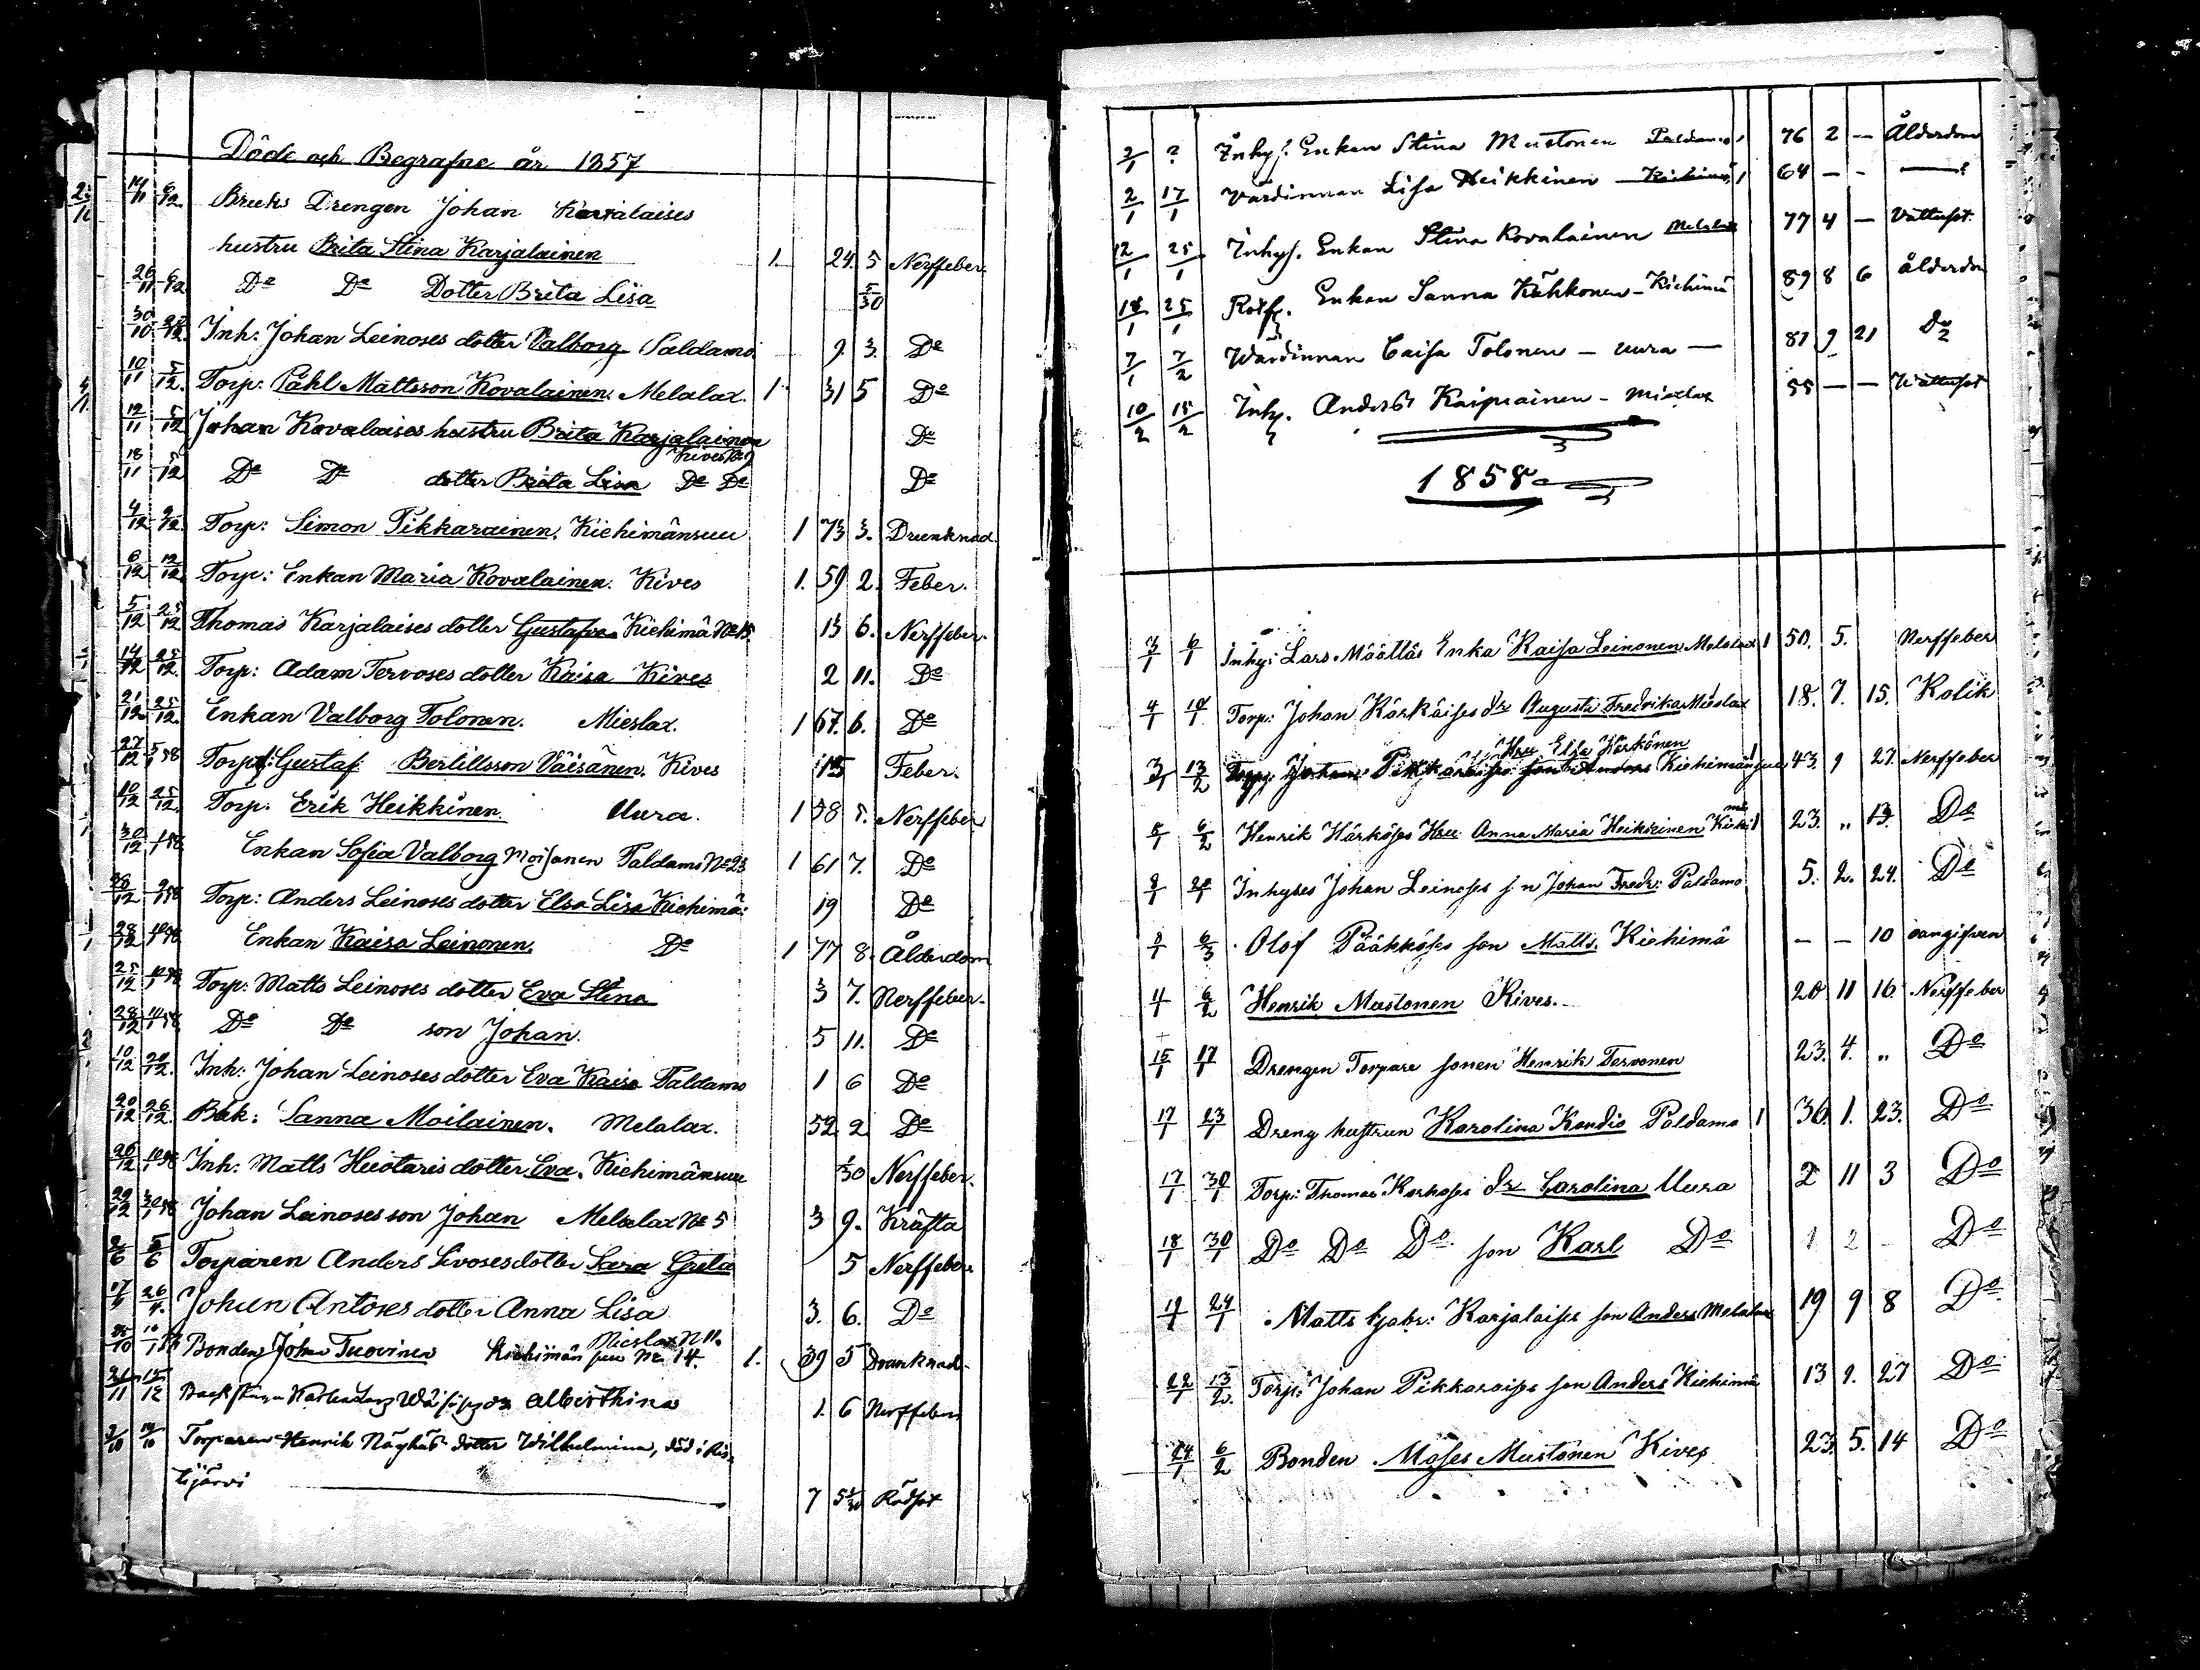 Döde och Begrafne år 1857
14/11 6/12 Bruks Drengen Johan Karjalaises
hustru Brita Stina Karjalainen 1. 24. 5 Nerffeber.
26/11 6/12 Do Do Dotter Brita Lisa 5/30
30/10 Inh: Johan Leinoses dotter Valborg Paldamo. 9. 3. Do
10/11 5/12. Torp: Påhl Mattsson Kovalainen. Melalax. 1 31 5 Do
12/11 5/12 Johan Kovalaises hustru Brita Karjalainen Do
Kives No 9
18/11 5/12 Do Do dotter Brita Lisa Do Do Do
4/12 9/12 Torp: Simon Pikkarainen. Kiehimänsuu 1 73 3. Drunknad.
6/12 12/12 Torp: Enkan Maria Kovalainen. Kives 1. 59 2. Feber.
5/12 25/12 Thomas Karjalaises dotter Gustafva Kiehimä No 15. 13 6. Nerffeber.
14/12 25/12. Torp: Adam Tervoses dotter Kaisa Kives 2 11. Do
21/12 25/12. Enkan Valborg Tolonen. Mieslax. 1 67. 6. Do
27/12 5/1 58 Torp: Gustaf Bertillsson Väisänen. Kives 15 Feber.
10/12 25/12. Torp. Erik Heikkinen Uura. 1 58 5. Nerffeber
30/12 58 Enkan Sofia Valborg Moisanen Paldamo No 23 1 61 7. Do
58 Torp: Anders Leinoses dotter Elsa Lisa Kiehimä: 19 Do
28/12 58 Enkan Kaisa Leinonen. Do 1 77 8. Ålderdom
25/12 58 Torp: Matts Leinoses dotter Eva Stina 3 7. Nerffeber.
28/12 58 Do Do son Johan. 5 11. Do
10/12 20/12. Inh: Johan Leinoses dotter Eva Kaisa Paldamo 1 6 Do
20/12 26/12. Bak: Sanna Moilainen. Melalax. 52 2 Do
26/12 58 Inh: Matts Huotaris dotter Eva. Kiehimänsuu 1/30 Nerffeber.
29/12 58 Johan Leinoses son Johan Melalax No 5 3 9. Kräfta
Torparen Anders Sivoses dotter Sara Greta 5 Nerffeber
Johan Antoses dotter Anna Lisa 3. 6. Do
Mieslax N 11.
Bonden Johan Tuovinen Kiehimän suu No. 14. 1. 39 5 Drunknad.
Alberthina 1. 6 Nerffeber
Torparen Henrik Näyhäs dotter Wilhelmina, död i Ris-
tijärvi 7 Rödsot
2/1 ? Inhys. Enkan Stina Mustonen Paldamo 1 76 2 — Ålderdom
2/1 17/1 Värdinnan Lisa Heikkinen — Kiehimä 1 64 — - —
12/1 25/1 Inhys. Enkan Stina Kovalainen Melalax 77 4 — Vattusot.
25/1 Enkan Sanna Kähkonen — Kiehimä 89 8 6 ålderdom
7/1 7/2 Wärdinnan Caisa Tolonen — Uura — 87 9 21 Do
10/2 15/2 Inhy. Anders Kaiprainen — Mieslax 55 — — Wattusot
1858
3/1 6/1 Inhy: Lars Määttäs Enka Kaisa Leinonen Melalax 1 50. 5. Nerffeber
4/1 10/1. Torp: Johan Kärkäises dr Augusta Fredrika Mieslax 18. 7. 15. Kolik
Hru Elsa Kärkönen
3/1 13/2 Torp. Johan Pikkaraises son Anders Kiehimänsuu 43. 9 27. Nerffeber
6/2 Henrik Härköses Hru Anna Maria Heikkinen Kiehimä 1 23. „ 13. Do
Inhyses Johan Leinoses s n Johan Fredr: Paldamo 5. 2. 24. Do
6/3 Olof Pääkköses son Matts. Kiehimä — — 10 oangifven
6/2 Henrik Mustonen Kives. 20 11 16. Nerffeber
15/1 17/1 Drengen Torpare sonen Henrik Tervonen 23. 4. „ Do
17/1 23/1 Dreng hustrun Karolina Kandio Paldamo 1 36. 1. 23. Do
17/1 30/1 Torp: Thomas Korhoses dr Carolina Uura 2 11 3 Do
18/1 30/1 Do Do Do son Karl Do 1 2 - Do
19/1 24/1 Matts Gabr: Karjalaises son Anders Melalax 19 9 8 Do
22/1 13/2. Torp: Johan Pikkaraises son Anders Kiehimä 13 9. 27 Do
24/1 6/2 Bonden Moses Mustonen Kives 23. 5. 14 Do